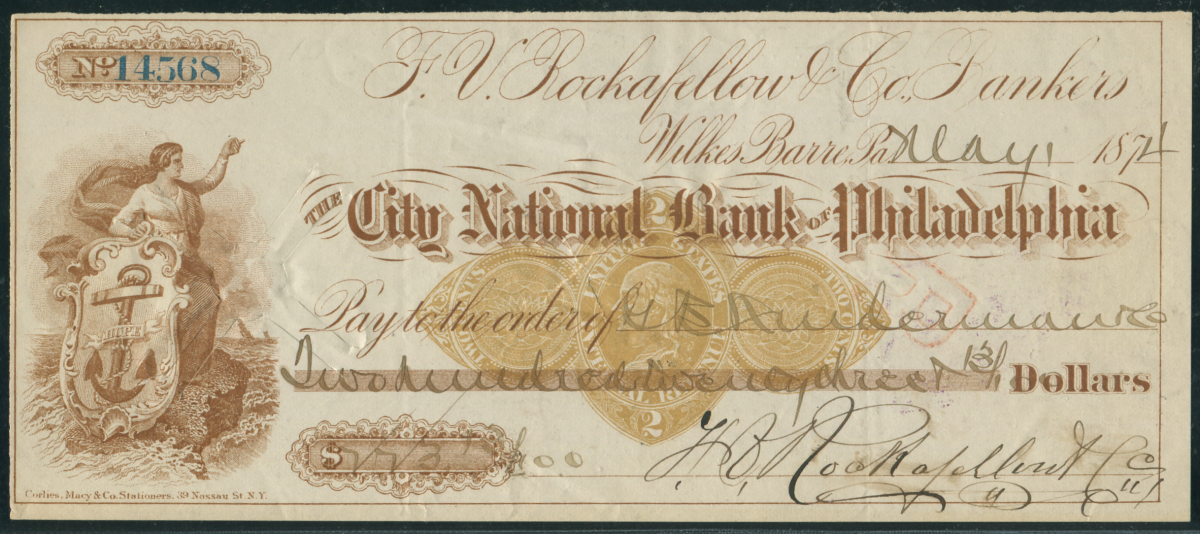 No 14568
F. V. Rockafellow & Co., Bankers
Wilkes Barre, Pa. May 1, 1874
THE City National Bank OF Philadelphia
Pay to the order of G B Linderman & Co
Two hundred twenty three & 13/ Dollars
$ 223 13/100
F. V. Rockafellow & Co
HOPE
2
UNITED
TWO CENTS
2
Corlies, Macy & Co. Stationers, 39 Nassau St. N.Y.